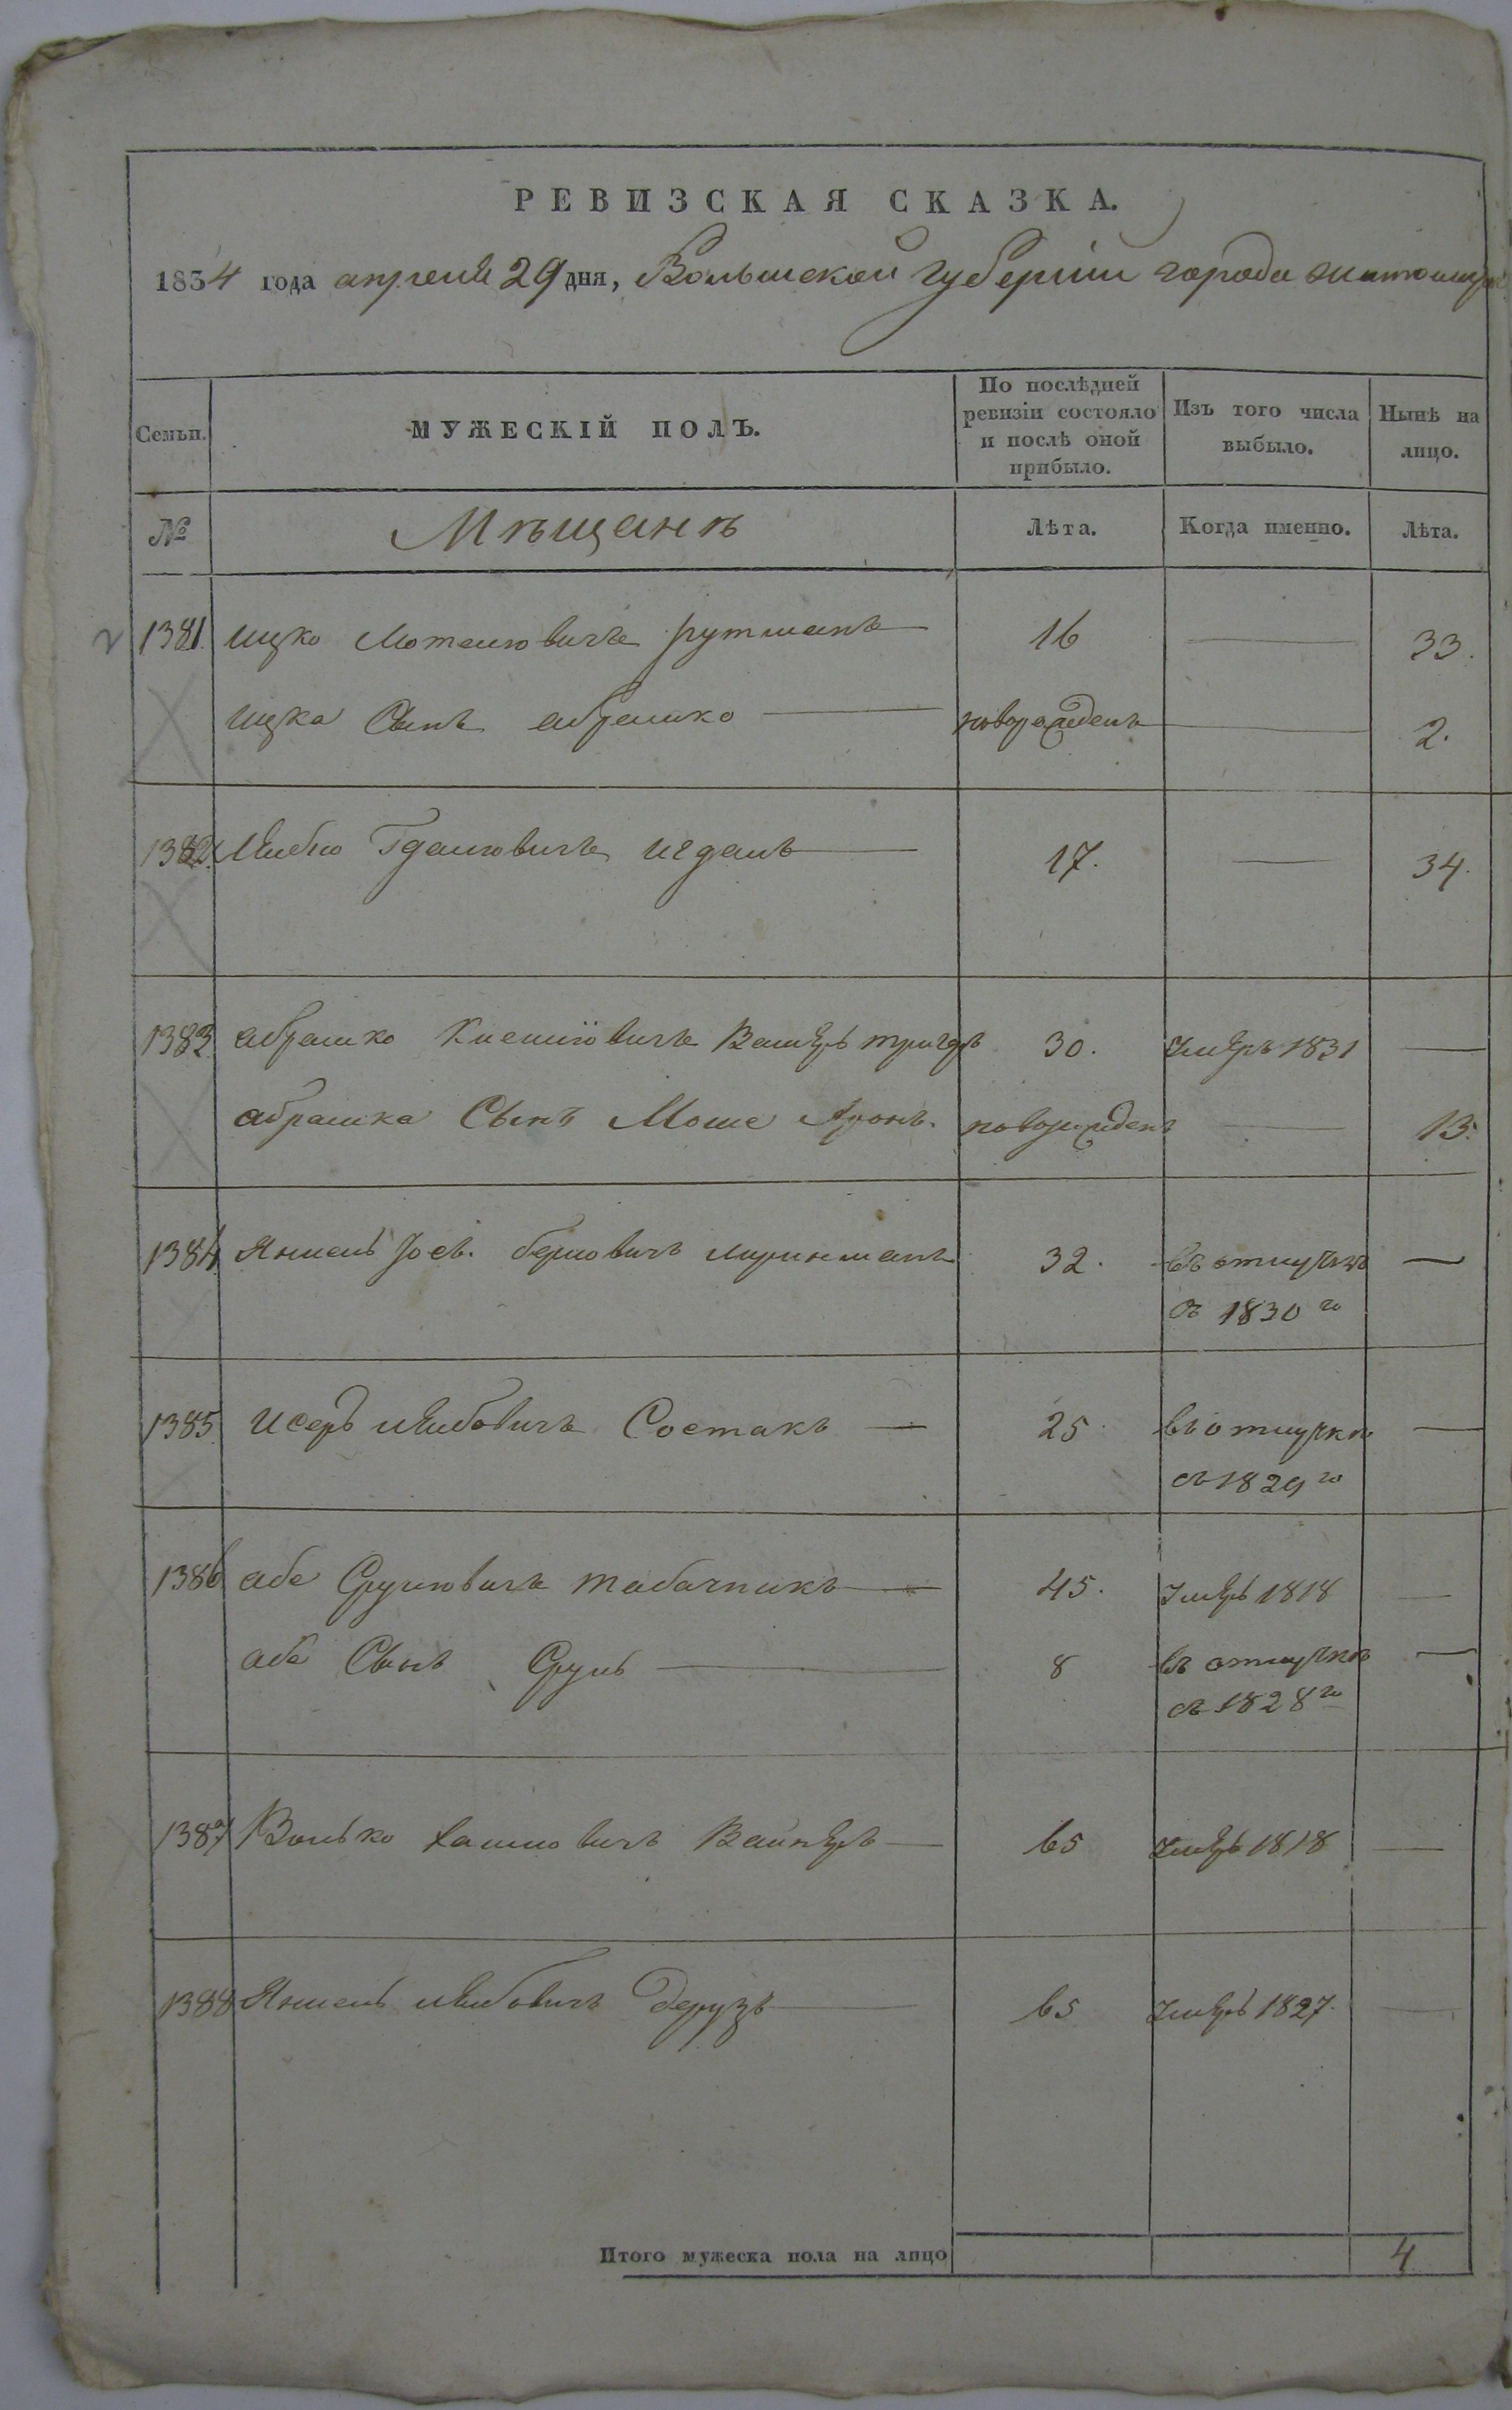 РЕВИЗСКАЯ СКАЗКА.
1834 года апреля 29 дня, Волынской Губернiи города Житомира
Семьи.
МУЖЕСКІЙ ПОЛЪ.
По послѣдней ревизіи состояло и послѣ оной прибыло.
Изъ того числа выбыло.
Нынѣ на лицо.
№ Мѣщанъ Лѣта. Когда именно. Лѣта.
1381. Ицко Мотелювичъ Рутманъ 16 33.
Ицка Сынъ абрамко новорожденъ 2.
1382. Лейбю 17. 34.
1383. абрамко 30. Умеръ 1831
абрамка Сынъ Моше Аронъ. новорожденъ 13.
1384. Янкель Іос. берковичъ 32. въ отлучкѣ
съ 1830 го
1385. Исеръ лейбовичъ Состакъ 25 въ отлучкѣ
съ 1829 го
1386 аба Срулювичъ табачникъ 45. Умеръ 1818
аба Сынъ Сруль 8 въ отлучкѣ
съ 1828 го
1387 Волько Хаимовичъ Вайнеръ 65 Умеръ 1818
1388 Янкель лейбовичъ 65 Умеръ 1827.
Итого мужеска пола на лицо 4